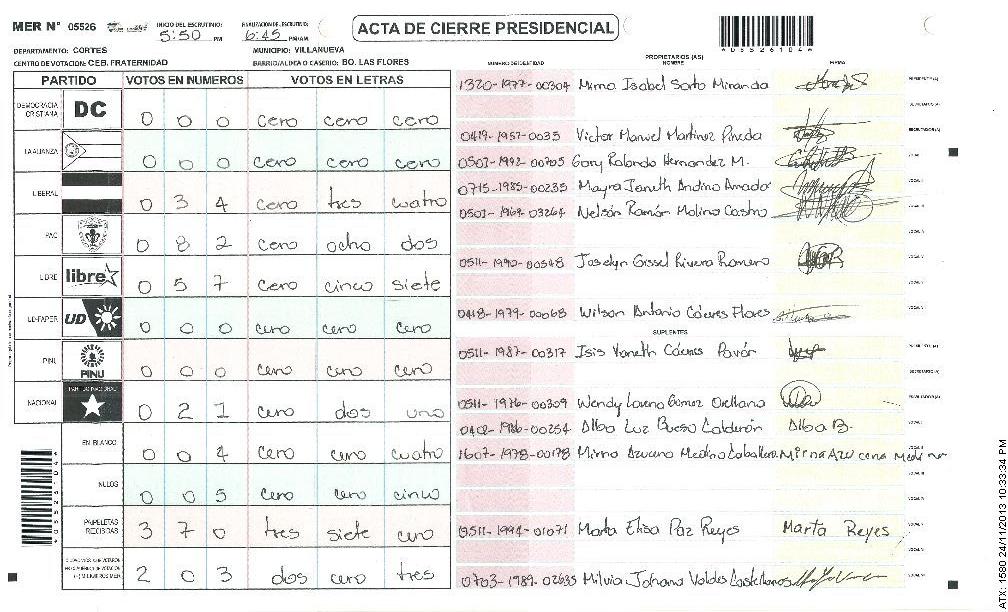 MER N° 05526
INICIO DEL ESCRUTINIO: 5:50 PM
FINALIZACION DEL ESCRUTINIO: 6:45 PM/AM
ACTA DE CIERRE PRESIDENCIAL
DEPARTAMENTO: CORTES
MUNICIPIO: VILLANUEVA
CENTRO DE VOTACION: CEB. FRATERNIDAD
BARRIO/ALDEA O CASERIO: BO. LAS FLORES
NUMERO DE IDENTIDAD PROPIETARIOS (AS) NOMBRE FIRMA
PARTIDO VOTOS EN NUMEROS VOTOS EN LETRAS
DEMOCRACIA CRISTIANA DC 0 0 0 cero cero cero
LA ALIANZA 0 0 0 cero cero cero
LIBERAL 0 3 4 cero tres cuatro
PAC 0 8 2 cero ocho dos
LIBRE libre 0 5 7 cero cinco siete
UD-FAPER UD 0 0 0 cero cero cero
PINU PINU 0 0 0 cero cero cero
NACIONAL PARTIDO NACIONAL 0 2 1 cero dos uno
EN BLANCO 0 0 4 cero cero cuatro
NULOS 0 0 5 cero cero cinco
PAPELETAS RECIBIDAS 3 7 0 tres siete cero
2 0 3 dos cero tres
1320-1977-00304 Mirna Isabel Sorto Miranda
Victor Manuel Martinez Pineda
0503-1992-00705 Gary Rolando Hernandez M.
0715-1985-00235 Mayra Janeth Andino Amador
0503-1969-03264 Nelson Ramón Molina Castro
0511-1990-00548 Joselyn Gissel Rivera Romero
0418-1979-00068 Wilson Antonio Cáceres Flores
SUPLENTES
0511-1987-00317 Isis Yaneth Cáceres Pavón
0511-1976-00309 Wendy Lorena Gomez Orellana
0402-1986-00254 Alba Luz Bueso Calderón Alba B.
1607-1978-00178 Mirna Azucena Medina Caballero Mirna Azucena Medina
0511-1994-01071 Marta Elisa Paz Reyes Marta Reyes
0703-1989-02635 Milvia Johana Valdes Castellanos
ATX: 1580 24/11/2013 10:33:34 PM